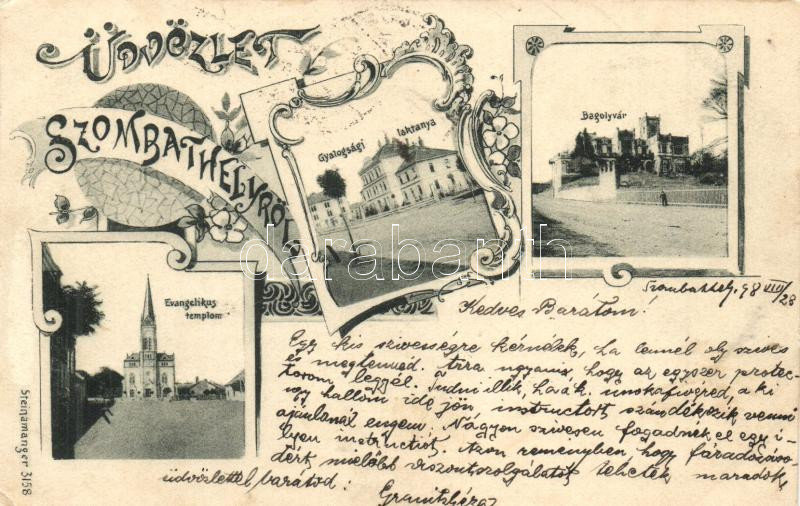 Üdvözlet
Szombathelyről
Gyalogsági laktanya
Bagolyvár
Evangelikus
templom
Steinamanger 3158
darabanth
Szombathely, 98 VIII/28
Kedves Barátom!
Egy kis szivességre kérnélek, ha lennél oly szives
és megtennéd. Arra ugyanis, hogy az egyszer protec-
torom legyél. Tudni illik, ha a k. unokafivéred, a ki
úgy hallom ide jön, instructort szándékszik venni
ajánlanál engem. Nagyon szivesen fogadnék el egy i-
lyen instructiót. Azon reményben, hogy fáradozáso-
dért mielőbb viszontszolgálatot tehetek maradok,
üdvözlettel barátod: